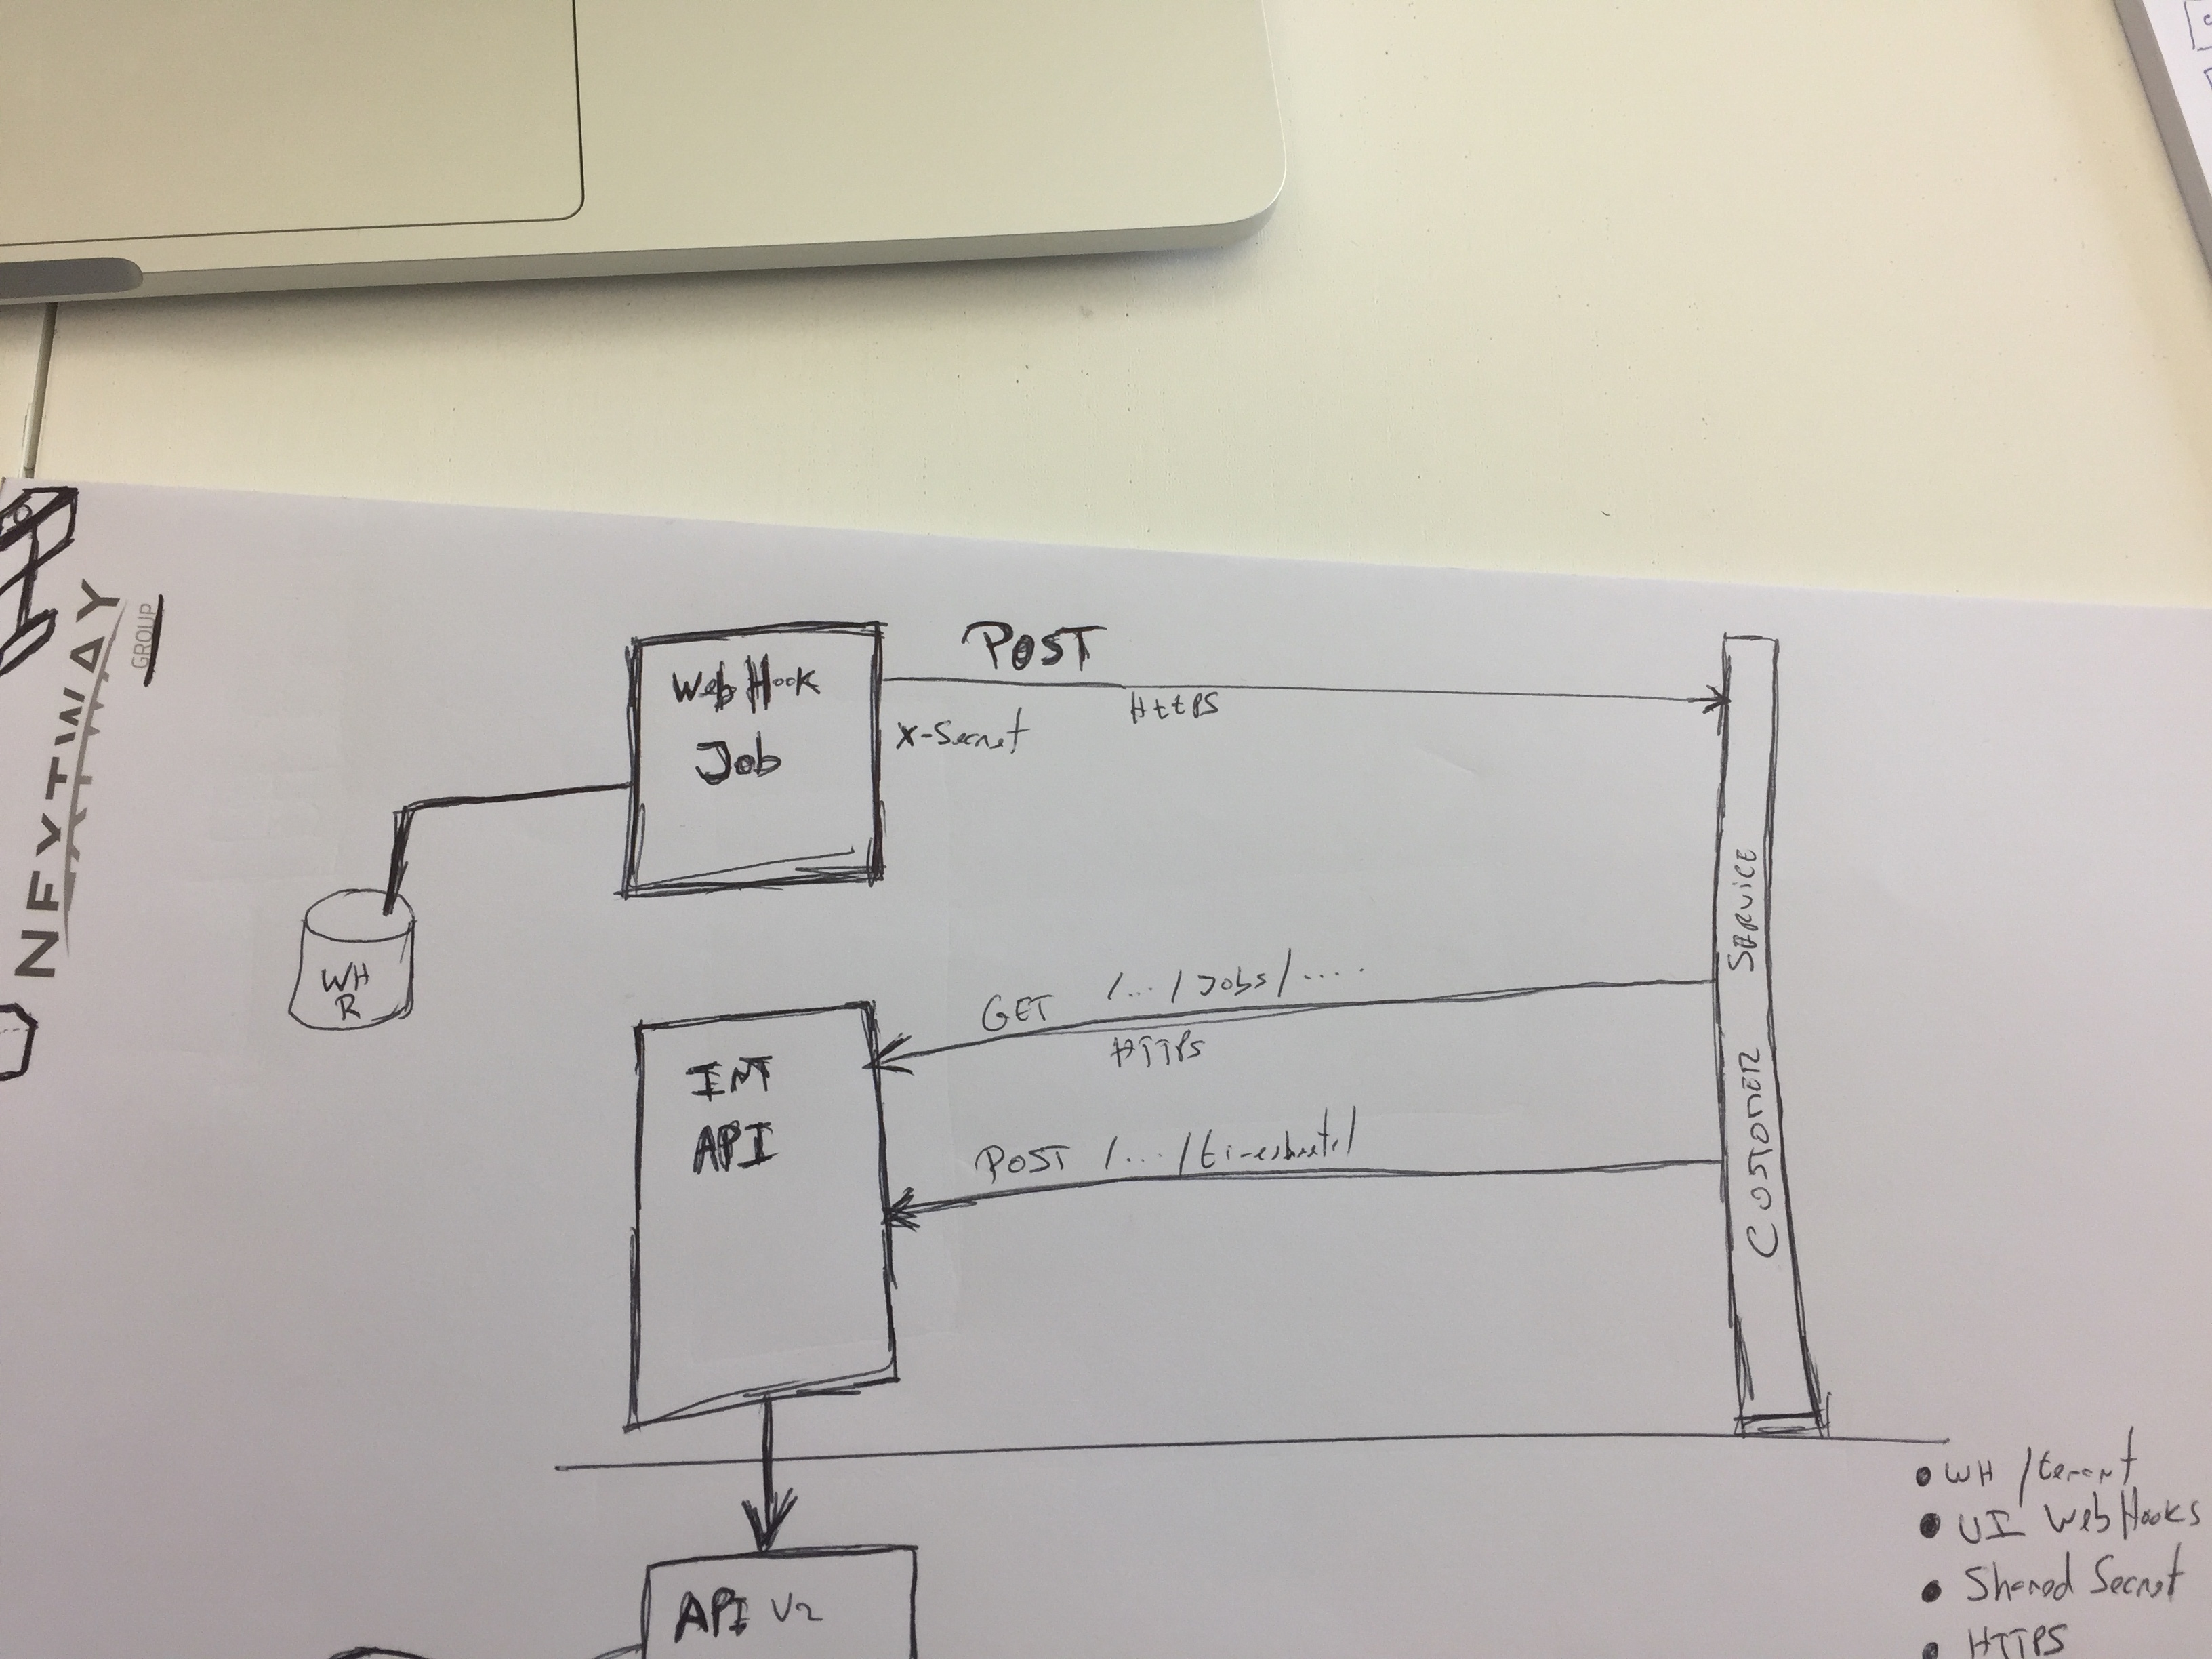 NEXTWAY
GROUP
WebHook
Job
POST
HttPS
X-Secret
WH
R
GET /.../Jobs/.....
HTTPS
INT
API
POST /..../timesheets/
COSTOMER SERVICE
API V2
• WH /tenant
• UI WebHooks
• Shared Secret
• HTTPS